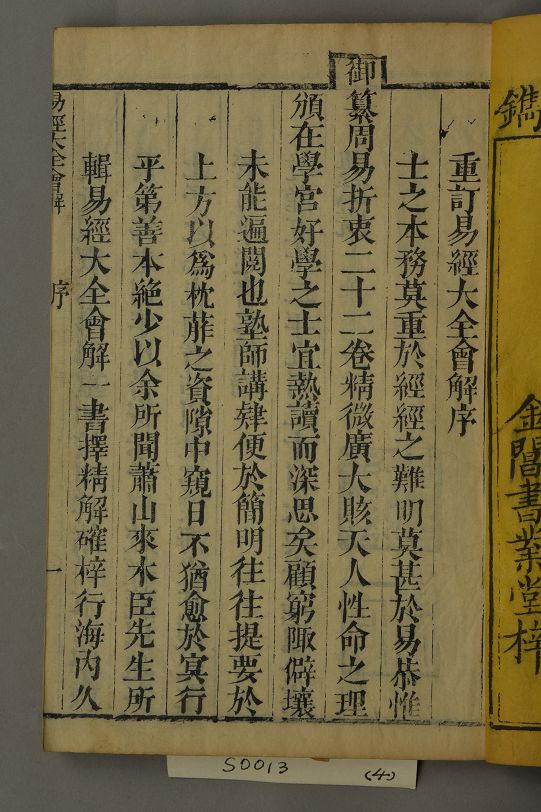 鐫
金閶書業堂梓
重訂易經大全會解序
士之本務莫重於經經之難明莫甚於易恭惟
御纂周易折衷二十二卷精微廣大賅天人性命之理
頒在學宮好學之士宜熱讀而深思矣顧窮陬僻壤
未能遍閱也塾師講肄便於簡明往往提要於
上方以爲枕葄之資隙中窺日不猶愈於㝠行
乎第善本絶少以余所聞蕭山來木臣先生所
輯易經大全會解一書擇精解確梓行海内久
易經大全會解 序 一
S0013 (4)